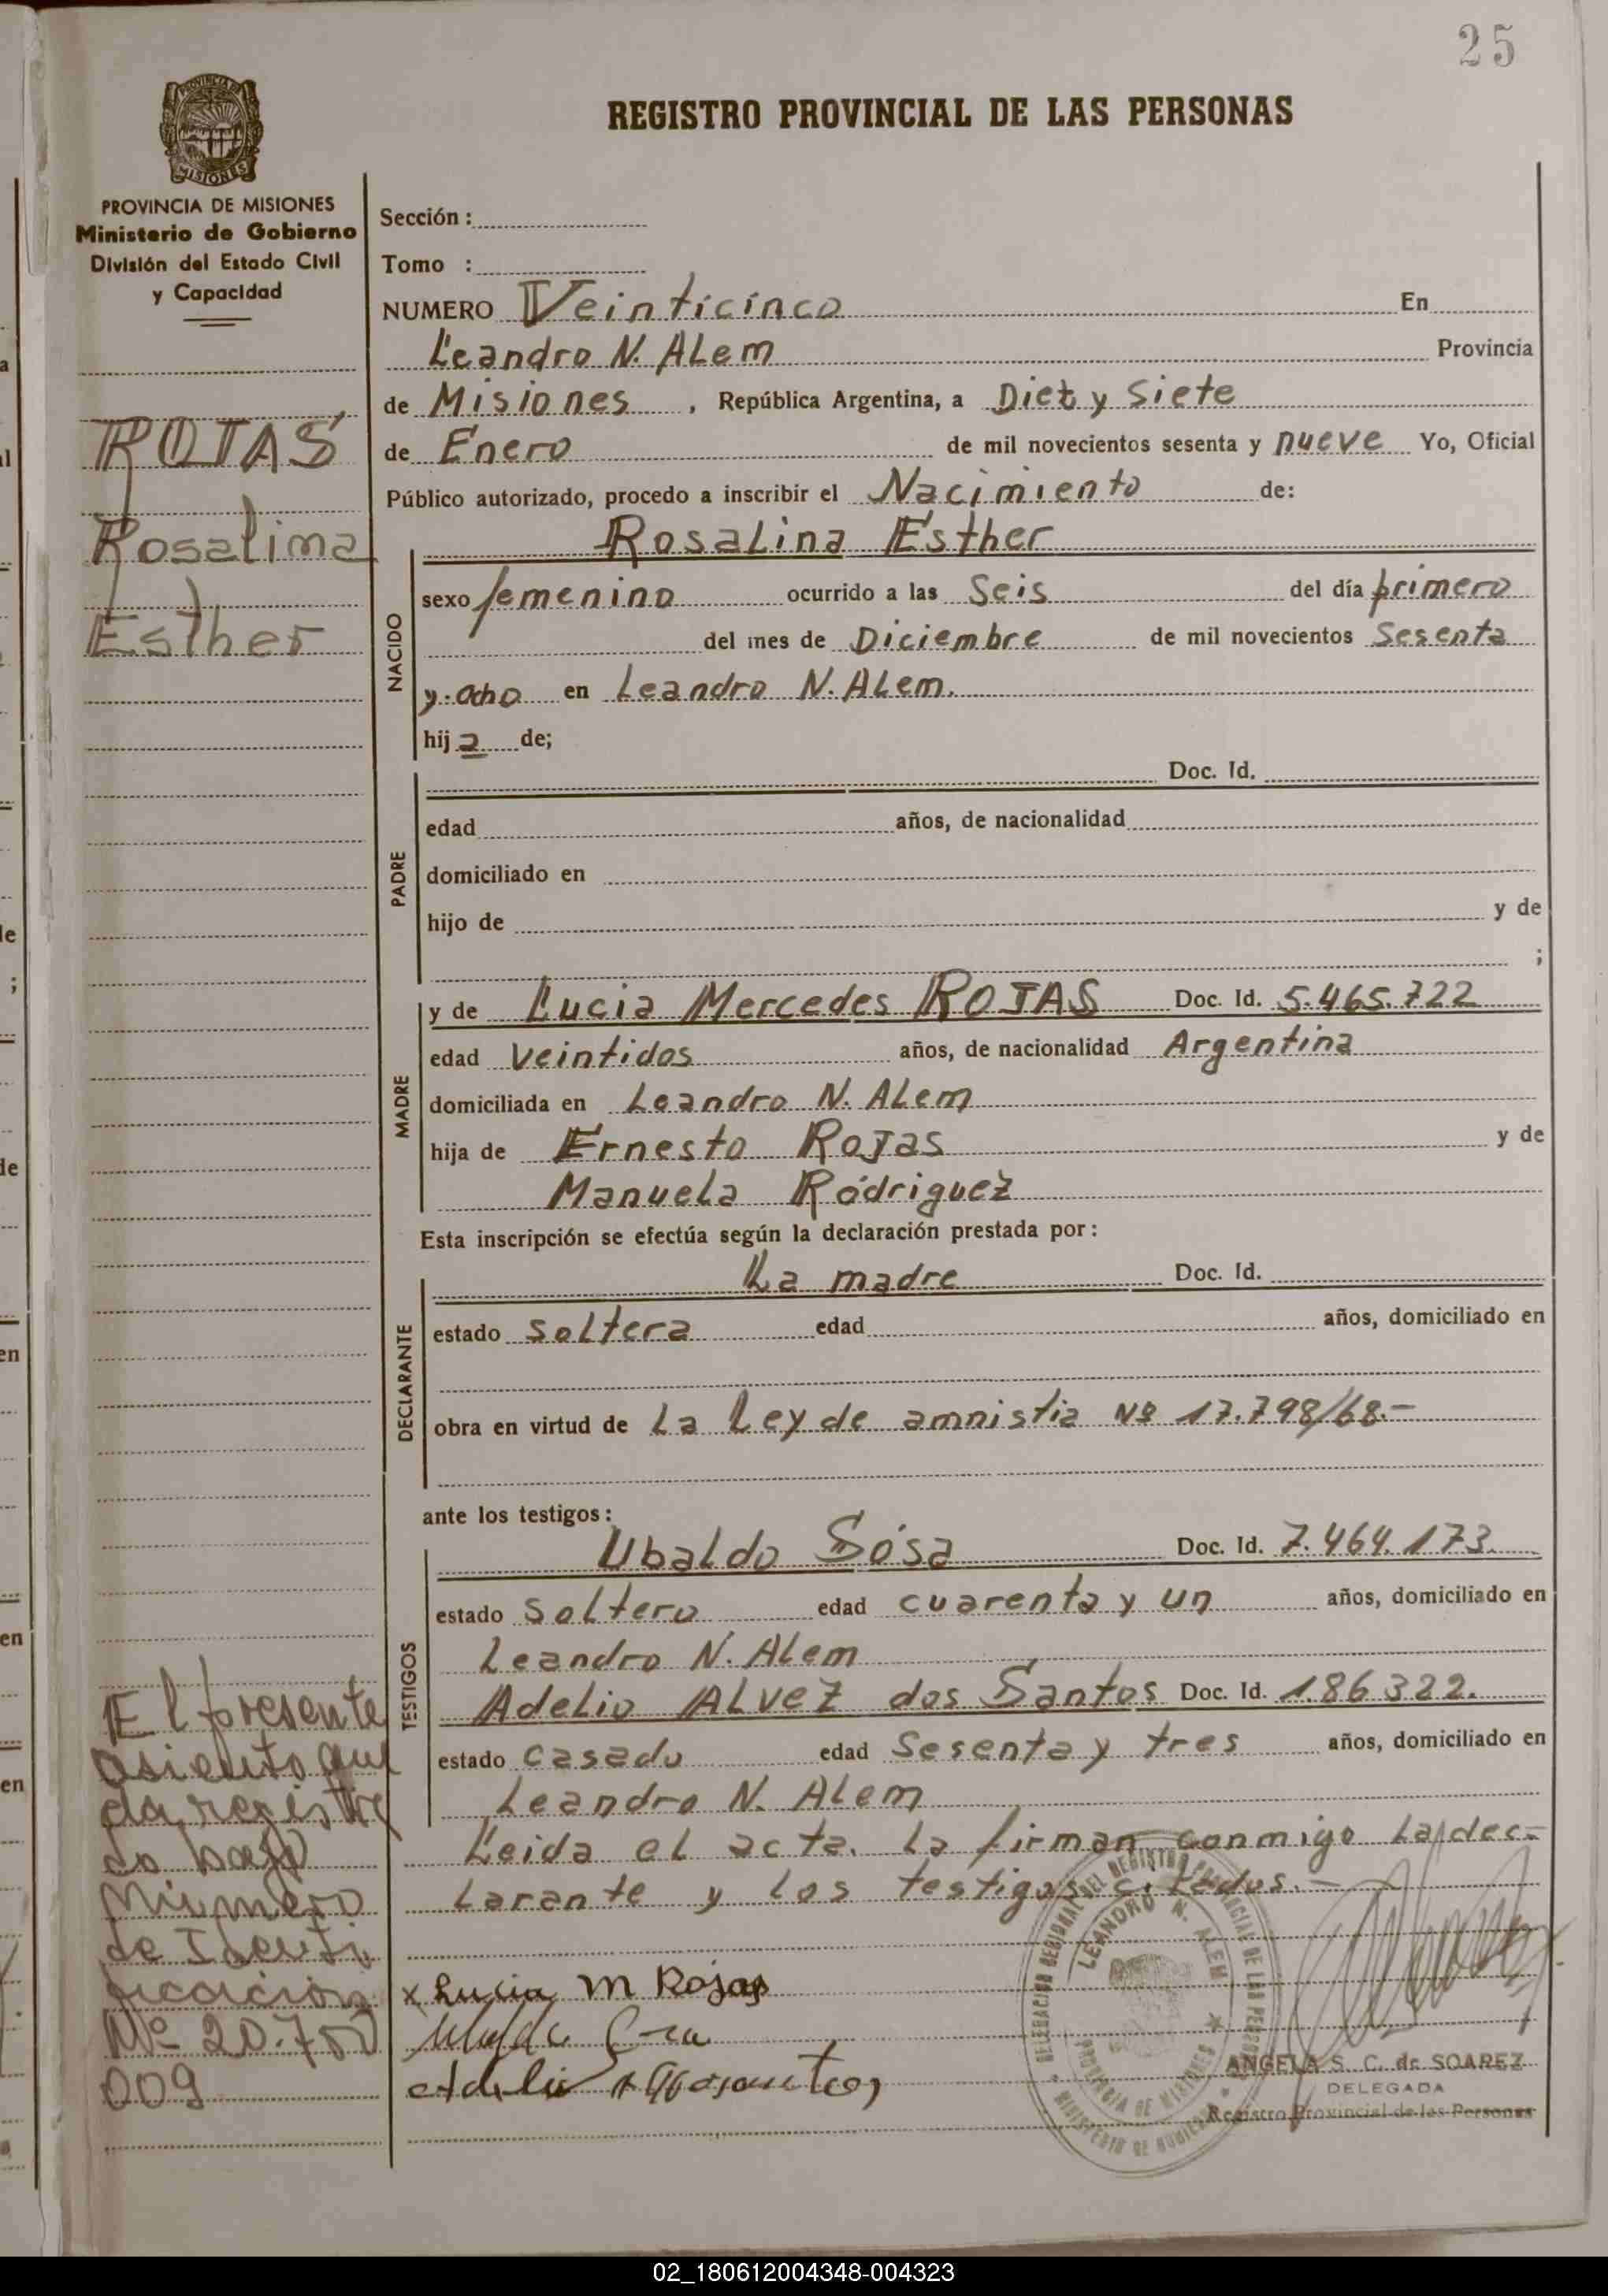 25
REGISTRO PROVINCIAL DE LAS PERSONAS
PROVINCIA DE MISIONES
MISIONES
PROVINCIA DE MISIONES
Ministerio de Gobierno
División del Estado Civil
y Capacidad
ROJAS
Rosalina
Esther
Sección :
Tomo :
NUMERO Veinticinco En
Leandro N. ALem Provincia
de Misiones , República Argentina, a Diez y Siete
de Enero de mil novecientos sesenta y nueve Yo, Oficial
Público autorizado, procedo a inscribir el Nacimiento de:
Rosalina Esther
NACIDO
sexo femenino ocurrido a las Seis del día primero
del mes de Diciembre de mil novecientos Sesenta
y ocho en Leandro N. ALem.
hij a de;
PADRE
Doc. Id.
edad años, de nacionalidad
domiciliado en
hijo de y de
;
MADRE
y de Lucia Mercedes ROJAS Doc. Id. 5.465.722
edad veintidos años, de nacionalidad Argentina
domiciliada en Leandro N. ALem
hija de Ernesto Rojas y de
Manuela Rodriguez
Esta inscripción se efectúa según la declaración prestada por :
DECLARANTE
La madre Doc. Id.
estado soltera edad años, domiciliado en
obra en virtud de La Ley de amnistia Nº 17.798/68.-
ante los testigos :
TESTIGOS
Ubaldo Sosa Doc. Id. 7.464.173.
estado soltero edad cuarenta y un años, domiciliado en
Leandro N. ALem
Adelio ALvez dos Santos Doc. Id. 186322.
estado casado edad Sesenta y tres años, domiciliado en
Leandro N. ALem
Leida el acta. la firman conmigo la dec-
larante y los testigos citados.-
El presente
asiento que
da registra
do bajo
Número
de Identi
ficación
Nº 20.750
009
x Lucia M Rojas
DELEGACION REGIONAL DEL REGISTRO PROVINCIAL DE LAS PERSONAS
LEANDRO N. ALEM
PROVINCIA DE MISIONES
MINISTERIO DE GOBIERNO
ANGELA S. C. de SOAREZ
DELEGADA
Registro Provincial de las Personas
02_180612004348-004323